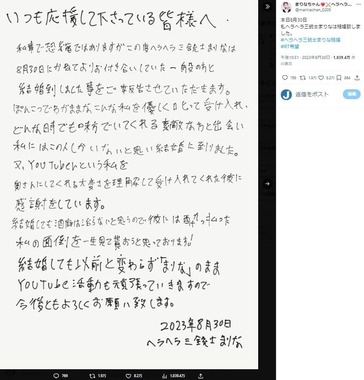 いつも応援して下さっている皆様へ
私事で恐縮ではありますがこの度ヘラヘラ三銃士まりなは
8月30日にかねてよりお付き合いしていた一般の方と
結婚致しました事をご報告させていただきます。
ぽんこつでわがままなこんな私を優しく
受け入れ
どんな時でも味方でいてくれる素敵な方と出会い
私にはこの人しかいないと思い結婚に至りました。
又、YouTuberという私を
奥さんにしてくれる大きさを理解して受け入れてくれた彼に
感謝をしています。
結婚しても酒癖は治らないと思うので彼には
私の面倒を一生見て貰おうと思っております!
結婚しても以前と変わらず「まりな」のまま
YouTube活動も頑張っていきますので
今後ともよろしくお願い致します。
2023年8月30日
ヘラヘラ三銃士まりな
まりなちゃん
本日8月30日
私ヘラヘラ三銃士まりなは結婚致しました。
#ヘラヘラ三銃士まりな結婚
#RT希望
返信をポスト